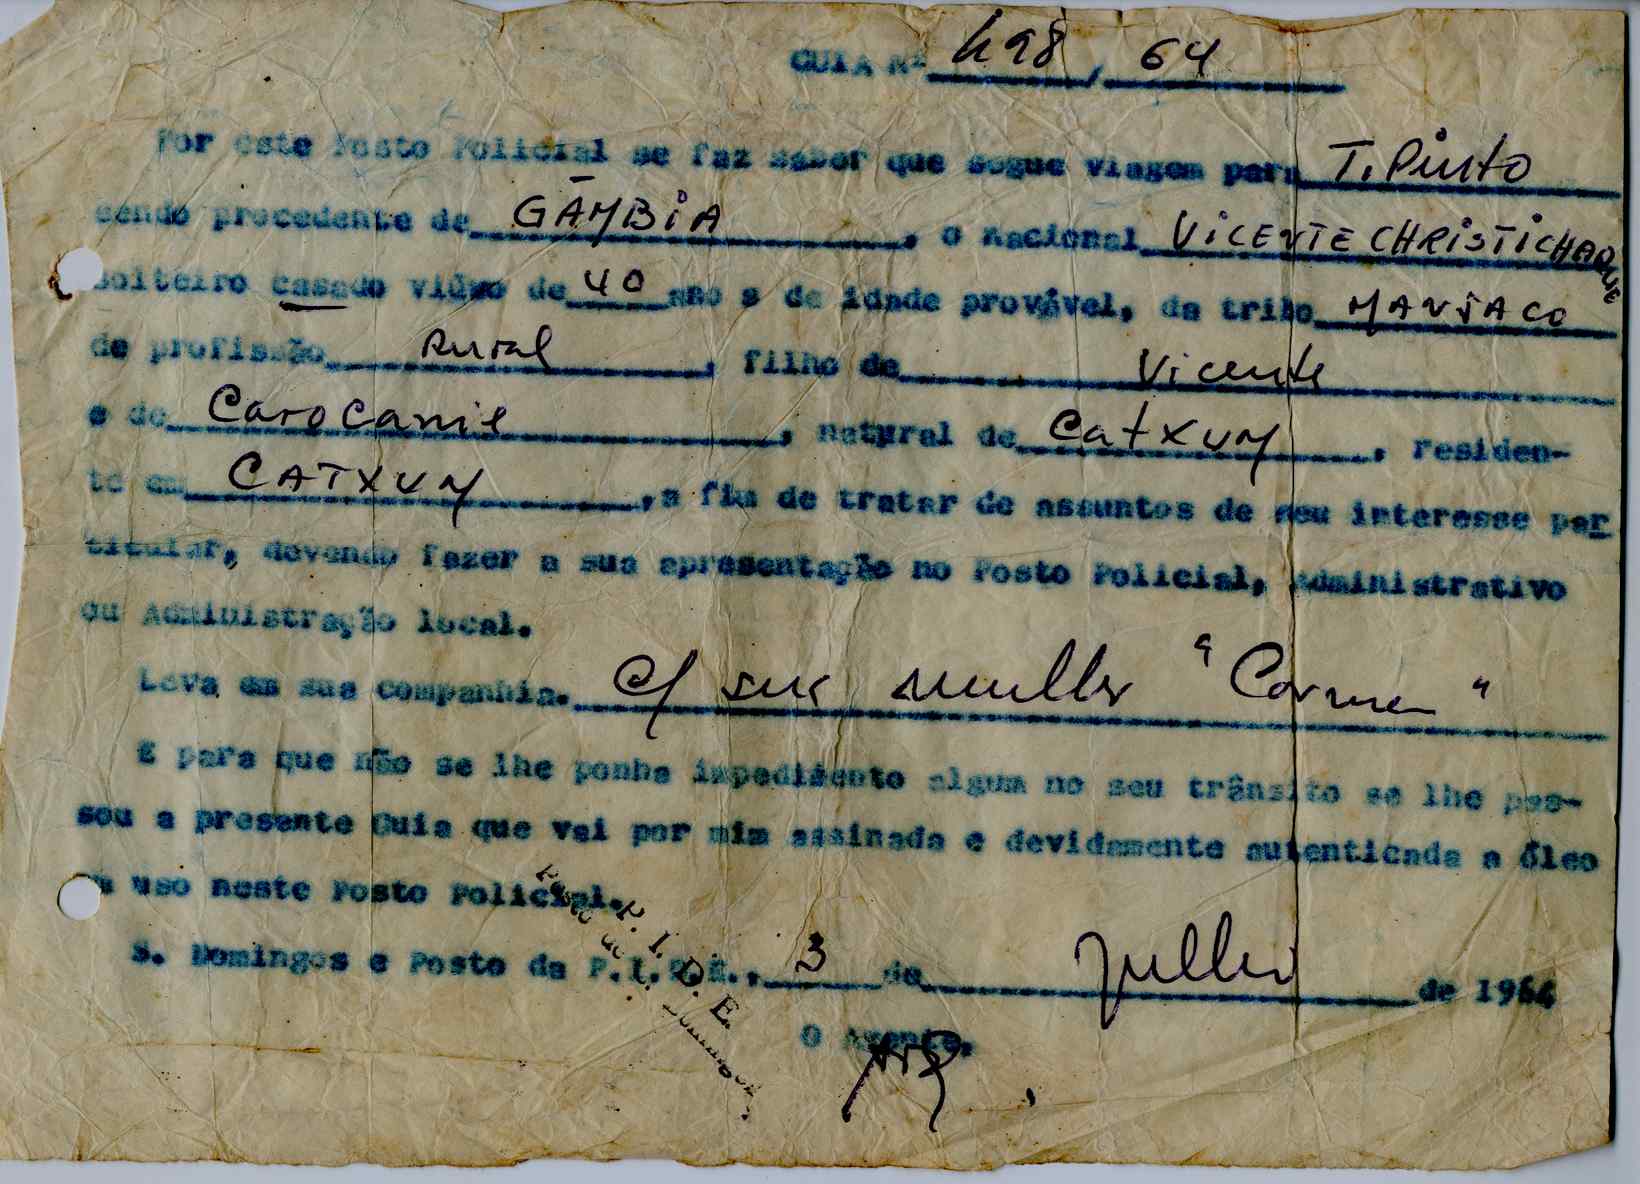 GUIA Nº 498 / 64
Por este Posto Policial se faz saber que segue viagem para T. Pinto
sendo procedente de GÂMBIA, o nacional VICENTE CHRISTICHAQUE
solteiro casado viúvo de 40 ano s de idade provável, da tribo MANJACO
de profissão rural, filho de Vicente
e de Carocanie, natural de Catxum, residen-
te em CATXUM, a fim de tratar de assuntos de seu interesse par
ticular, devendo fazer a sua apresentação no Posto Policial, Administrativo
ou Administração local.
Leva em sua companhia. c/ sua mulher "Carmen"
E para que não se lhe ponha impedimento algum no seu trânsito se lhe pas-
sou a presente Guia que vai por mim assinada e devidamente autenticada a óleo
em uso neste Posto Policial.
P. I. D. E.
Posto de S. Domingos
S. Domingos e Posto da P.I.D.E., 3 de Julho de 1964
O Agente,